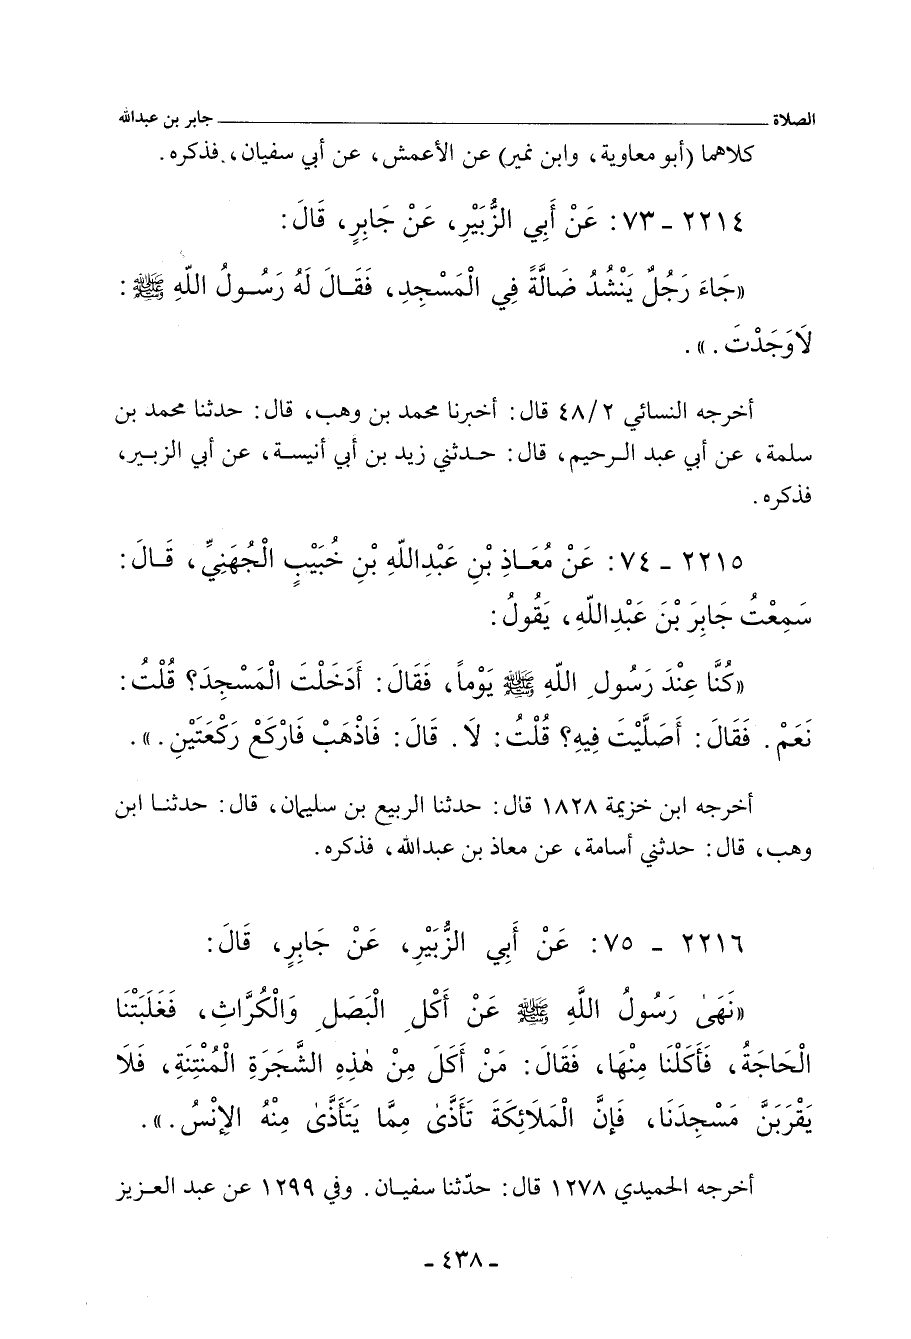 الصلاة ــــــــ جابر بن عبدالله
كلاهما (أبو معاوية، وابن نمير) عن الأعمش، عن أبي سفيان، فذكره.
٢٢١٤ - ٧٣: عَنْ أَبِي الزُّبَيْرِ، عَنْ جَابِرٍ، قَالَ:
«جَاءَ رَجُلٌ يَنْشُدُ ضَالَّةً فِي الْمَسْجِدِ، فَقَالَ لَهُ رَسُولُ اللَّهِ ﷺ:
لاَوَجَدْتَ.».
أخرجه النسائي ٤٨/٢ قال: أخبرنا محمد بن وهب، قال: حدثنا محمد بن
سلمة، عن أبي عبد الرحيم، قال: حدثني زيد بن أبي أنيسة، عن أبي الزبير،
فذكره.
٢٢١٥ - ٧٤: عَنْ مُعَاذِ بْنِ عَبْدِاللَّهِ بْنِ خُبَيْبٍ الْجُهَنِيِّ، قَالَ:
سَمِعْتُ جَابِرَ بْنَ عَبْدِاللَّهِ، يَقُولُ:
«كُنَّا عِنْدَ رَسُولِ اللَّهِ ﷺ يَوْماً، فَقَالَ: أَدَخَلْتَ الْمَسْجِدَ؟ قُلْتُ:
نَعَمْ. فَقَالَ: أَصَلَّيْتَ فِيهِ؟ قُلْتُ: لاَ. قَالَ: فَاذْهَبْ فَارْكَعْ رَكْعَتَيْنِ.».
أخرجه ابن خزيمة ١٨٢٨ قال: حدثنا الربيع بن سليمان، قال: حدثنا ابن
وهب، قال: حدثني أسامة، عن معاذ بن عبدالله، فذكره.
٢٢١٦ - ٧٥: عَنْ أَبِي الزُّبَيْرِ، عَنْ جَابِرٍ، قَالَ:
«نَهَىٰ رَسُولُ اللَّهِ ﷺ عَنْ أَكْلِ الْبَصَلِ وَالْكُرَّاثِ، فَغَلَبَتْنَا
الْحَاجَةُ، فَأَكَلْنَا مِنْهَا، فَقَالَ: مَنْ أَكَلَ مِنْ هٰذِهِ الشَّجَرَةِ الْمُنْتِنَةِ، فَلَا
يَقْرَبَنَّ مَسْجِدَنَا، فَإِنَّ الْمَلَائِكَةَ تَأَذَّىٰ مِمَّا يَتَأَذَّىٰ مِنْهُ الإِنْسُ.».
أخرجه الحميدي ١٢٧٨ قال: حدّثنا سفيان. وفي ١٢٩٩ عن عبد العزيز
- ٤٣٨ -